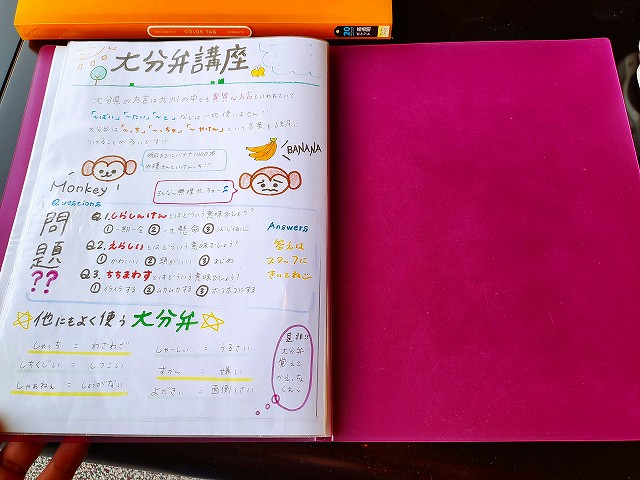 COLOR TAG
大分弁講座
大分県の方言は九州の中でも異質な方言といわれていて
「～ばい」「～たい」「～と」などは一切使いません!
大分弁は「～っち」「～っちゃ」「～やけん」という言葉を語尾に
つけることが多いです!!
明日までにバナナ1000本
BANANA
Monkey
Questions
問題??
Q1.しらしんけんとはどういう意味でしょう?
①一期一会 ②一生懸命 ③
Q2.えらしいとはどういう意味でしょう?
①かわいい ②頭がいい ③まじめ
Q3.ちちまわすとはどういう意味でしょう?
①イライラする ②ムカムカする ③ボコボコにする
Answers
答えは
スタッフに
きいてね
他にもよく使う大分弁
しゃっち = わざわざ
しゃーしい = うるさい
しちくじい = しつこい
すかん = 嫌い
しゃあねえ = しょうがない
よだきい = 面倒くさい
是非!!
大分弁
覚えて
かえっちょ
くれ～